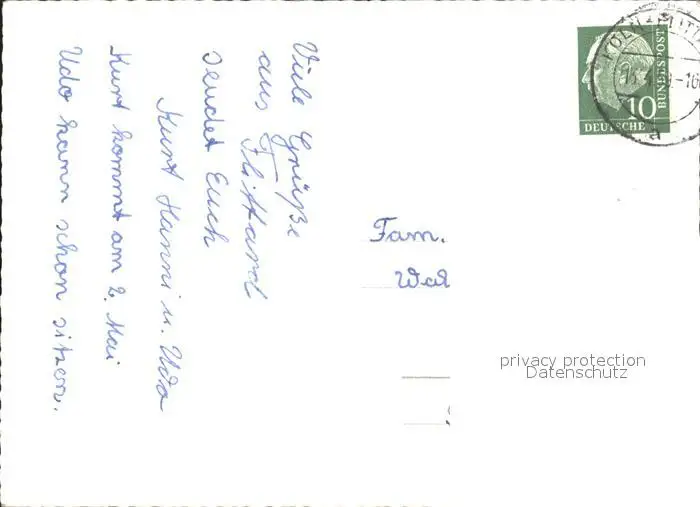 Viele Grüße
aus Flittard
sendet Euch
Kurt Hanni u. Udo
Kurt kommt am 2. Mai
Udo kann schon sitzen.
Fam.
privacy protection
Datenschutz
DEUTSCHE
BUNDESPOST
10
KÖLN-FLITTA
a